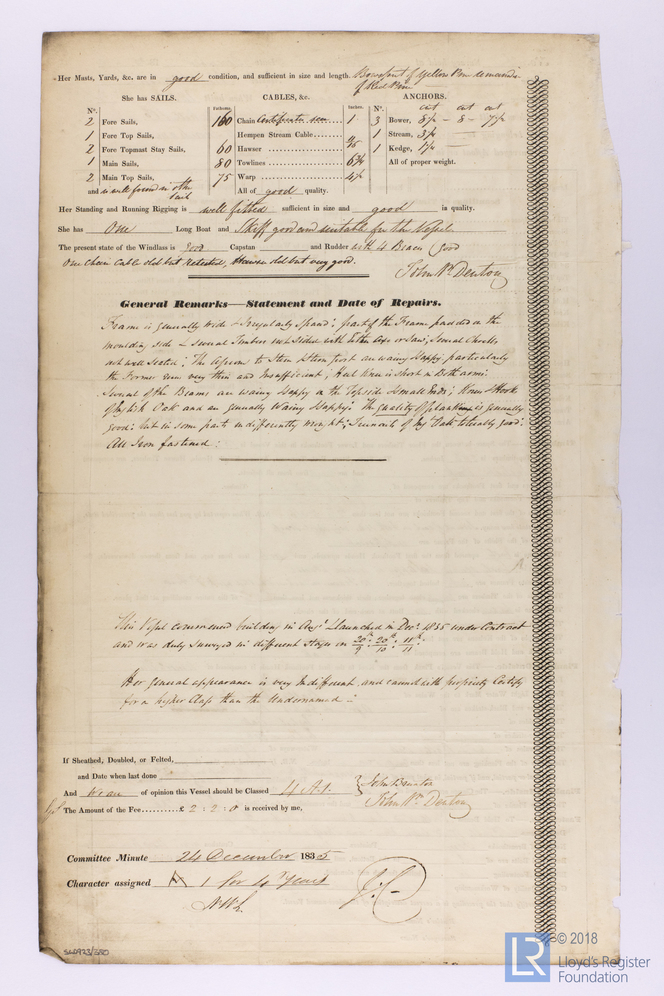 Her Masts, Yards, &c. are in good condition, and sufficient in size and length. Bowsprit of yellow Pine remainder of Red Pine
She has SAILS. CABLES, &c. ANCHORS.
Nº. Fathoms. Inches. Nº. cwt cwt cwt
2 Fore Sails, 160 Chain Certificate seen 1 3 Bower, 8 7
1 Fore Top Sails, Hempen Stream Cable....... 1 Stream,
2 Fore Topmast Stay Sails, 60 Hawser 1 Kedge,
1 Main Sails, 80 Towlines All of proper weight.
2 Main Top Sails, 75 Warp
and is well found in other Sails All of good quality.
Her Standing and Running Rigging is well fitted sufficient in size and good in quality.
She has One Long Boat and Skiff good and suitable for the Vessel
The present state of the Windlass is good Capstan and Rudder with 4 Braces good
One Chain Cable old but retested, Hawser old but very good.
John Wm. Denton
General Remarks—Statement and Date of Repairs.
Frame is generally wide & Irregularly spaced; part of the Frame padded on the
moulding side & several Timbers not sided with Either Axe or Saw; several Chocks
not well seated; The Apron to Stem & Stern post are waney & sappy, particularly
the Former seen very thin and Insufficient;
Several of the Beams are waney & sappy on the Topside & small Ends; Knees & Hooks
of English Oak and are generally Waney & sappy: The quality of plank is generally
good: but in some parts indifferently wrought; Treenails of Eng. Oak tolerably good:
All Iron fastened:
This Vessel commenced building in Augt. & launched in Decr. 1835 under Contract
and was duly surveyed in different Stages on 20th/9: 20th/10: 11th/11:
Her general appearance is very Indifferent and cannot with propriety Certify
for a higher Class than the Undernamed:
If Sheathed, Doubled, or Felted,
and Date when last done
And We are of opinion this Vessel should be Classed 4 A1. John Brunton
The Amount of the Fee.......... £ 2 : 2 : 0 is received by me, John Wm. Denton
Committee Minute 24 December 1835
Character assigned A 1 for 4 Years
© 2018
LR
Lloyd's Register
Foundation